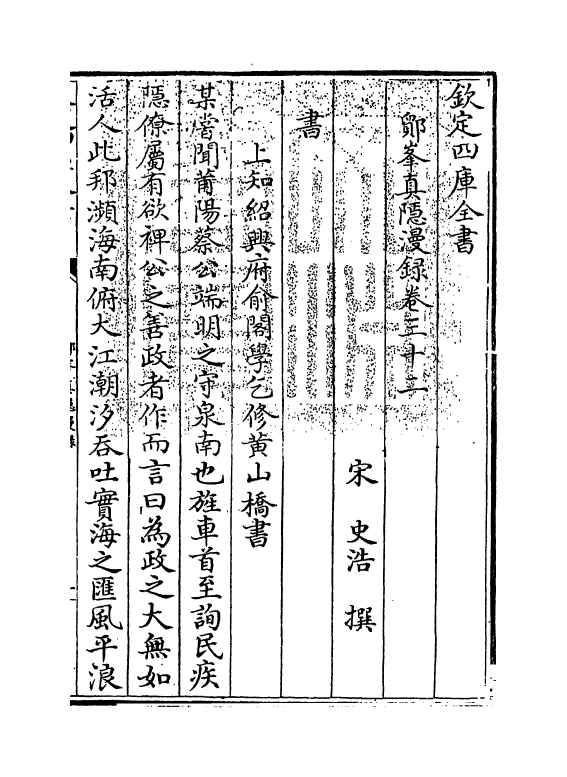 欽定四庫全書
鄮峯真隠漫録卷三十二
宋 史浩 撰
書
上知紹興府俞閣學乞修黄山橋書
某嘗聞莆陽蔡公端明之守泉南也旌車首至詢民疾
隠僚屬有欲裨公之善政者作而言曰為政之大無如
活人此邦瀕海南俯大江潮汐吞吐實海之匯風平浪